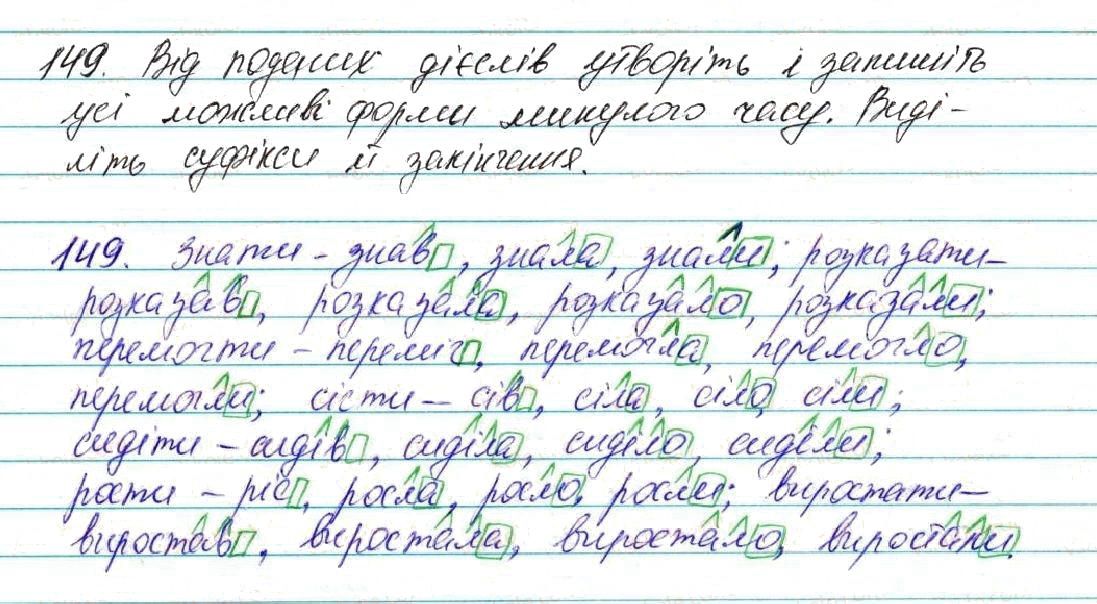 149. Від поданих дієслів утворіть і запишіть
усі можливі форми минулого часу. Виді-
літь суфікси й закінчення.
149. Знати - знав, знала, знали; розказати-
розказав, розказала, розказало, розказали;
перемогти - переміг, перемогла, перемогло,
перемогли; сісти - сів, сіла, сіло, сіли;
сидіти - сидів, сиділа, сиділо, сиділи;
рости - ріс, росла, росло, росли; виростати-
виростав, виростала, виростало, виростали.